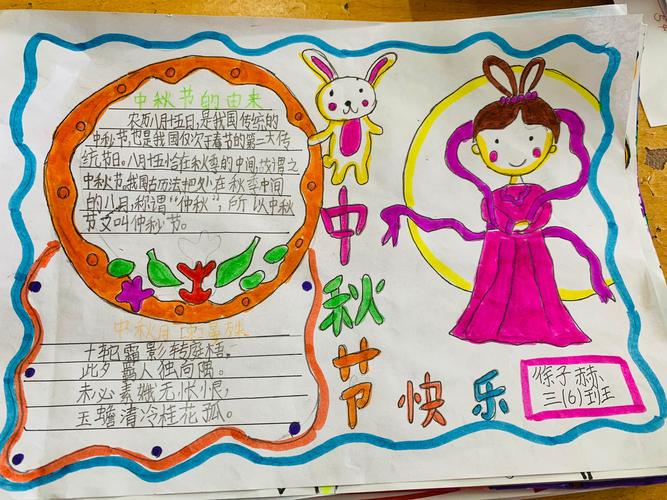 中秋节的由来
农历八月十五日,是我国传统的
中秋节,也是我国仅次于春节的第二大传
统节日。八月十五恰在秋季的中间,故谓之
中秋节。我国古历法把处在秋季中间
的八月,称谓“仲秋”,所以中秋
节又叫仲秋节。
中秋
十轮霜影转庭梧,
此夕羁人独向隅。
未必素娥无怅恨,
玉蟾清冷桂花孤。
中秋节快乐
徐子赫
三(6)班